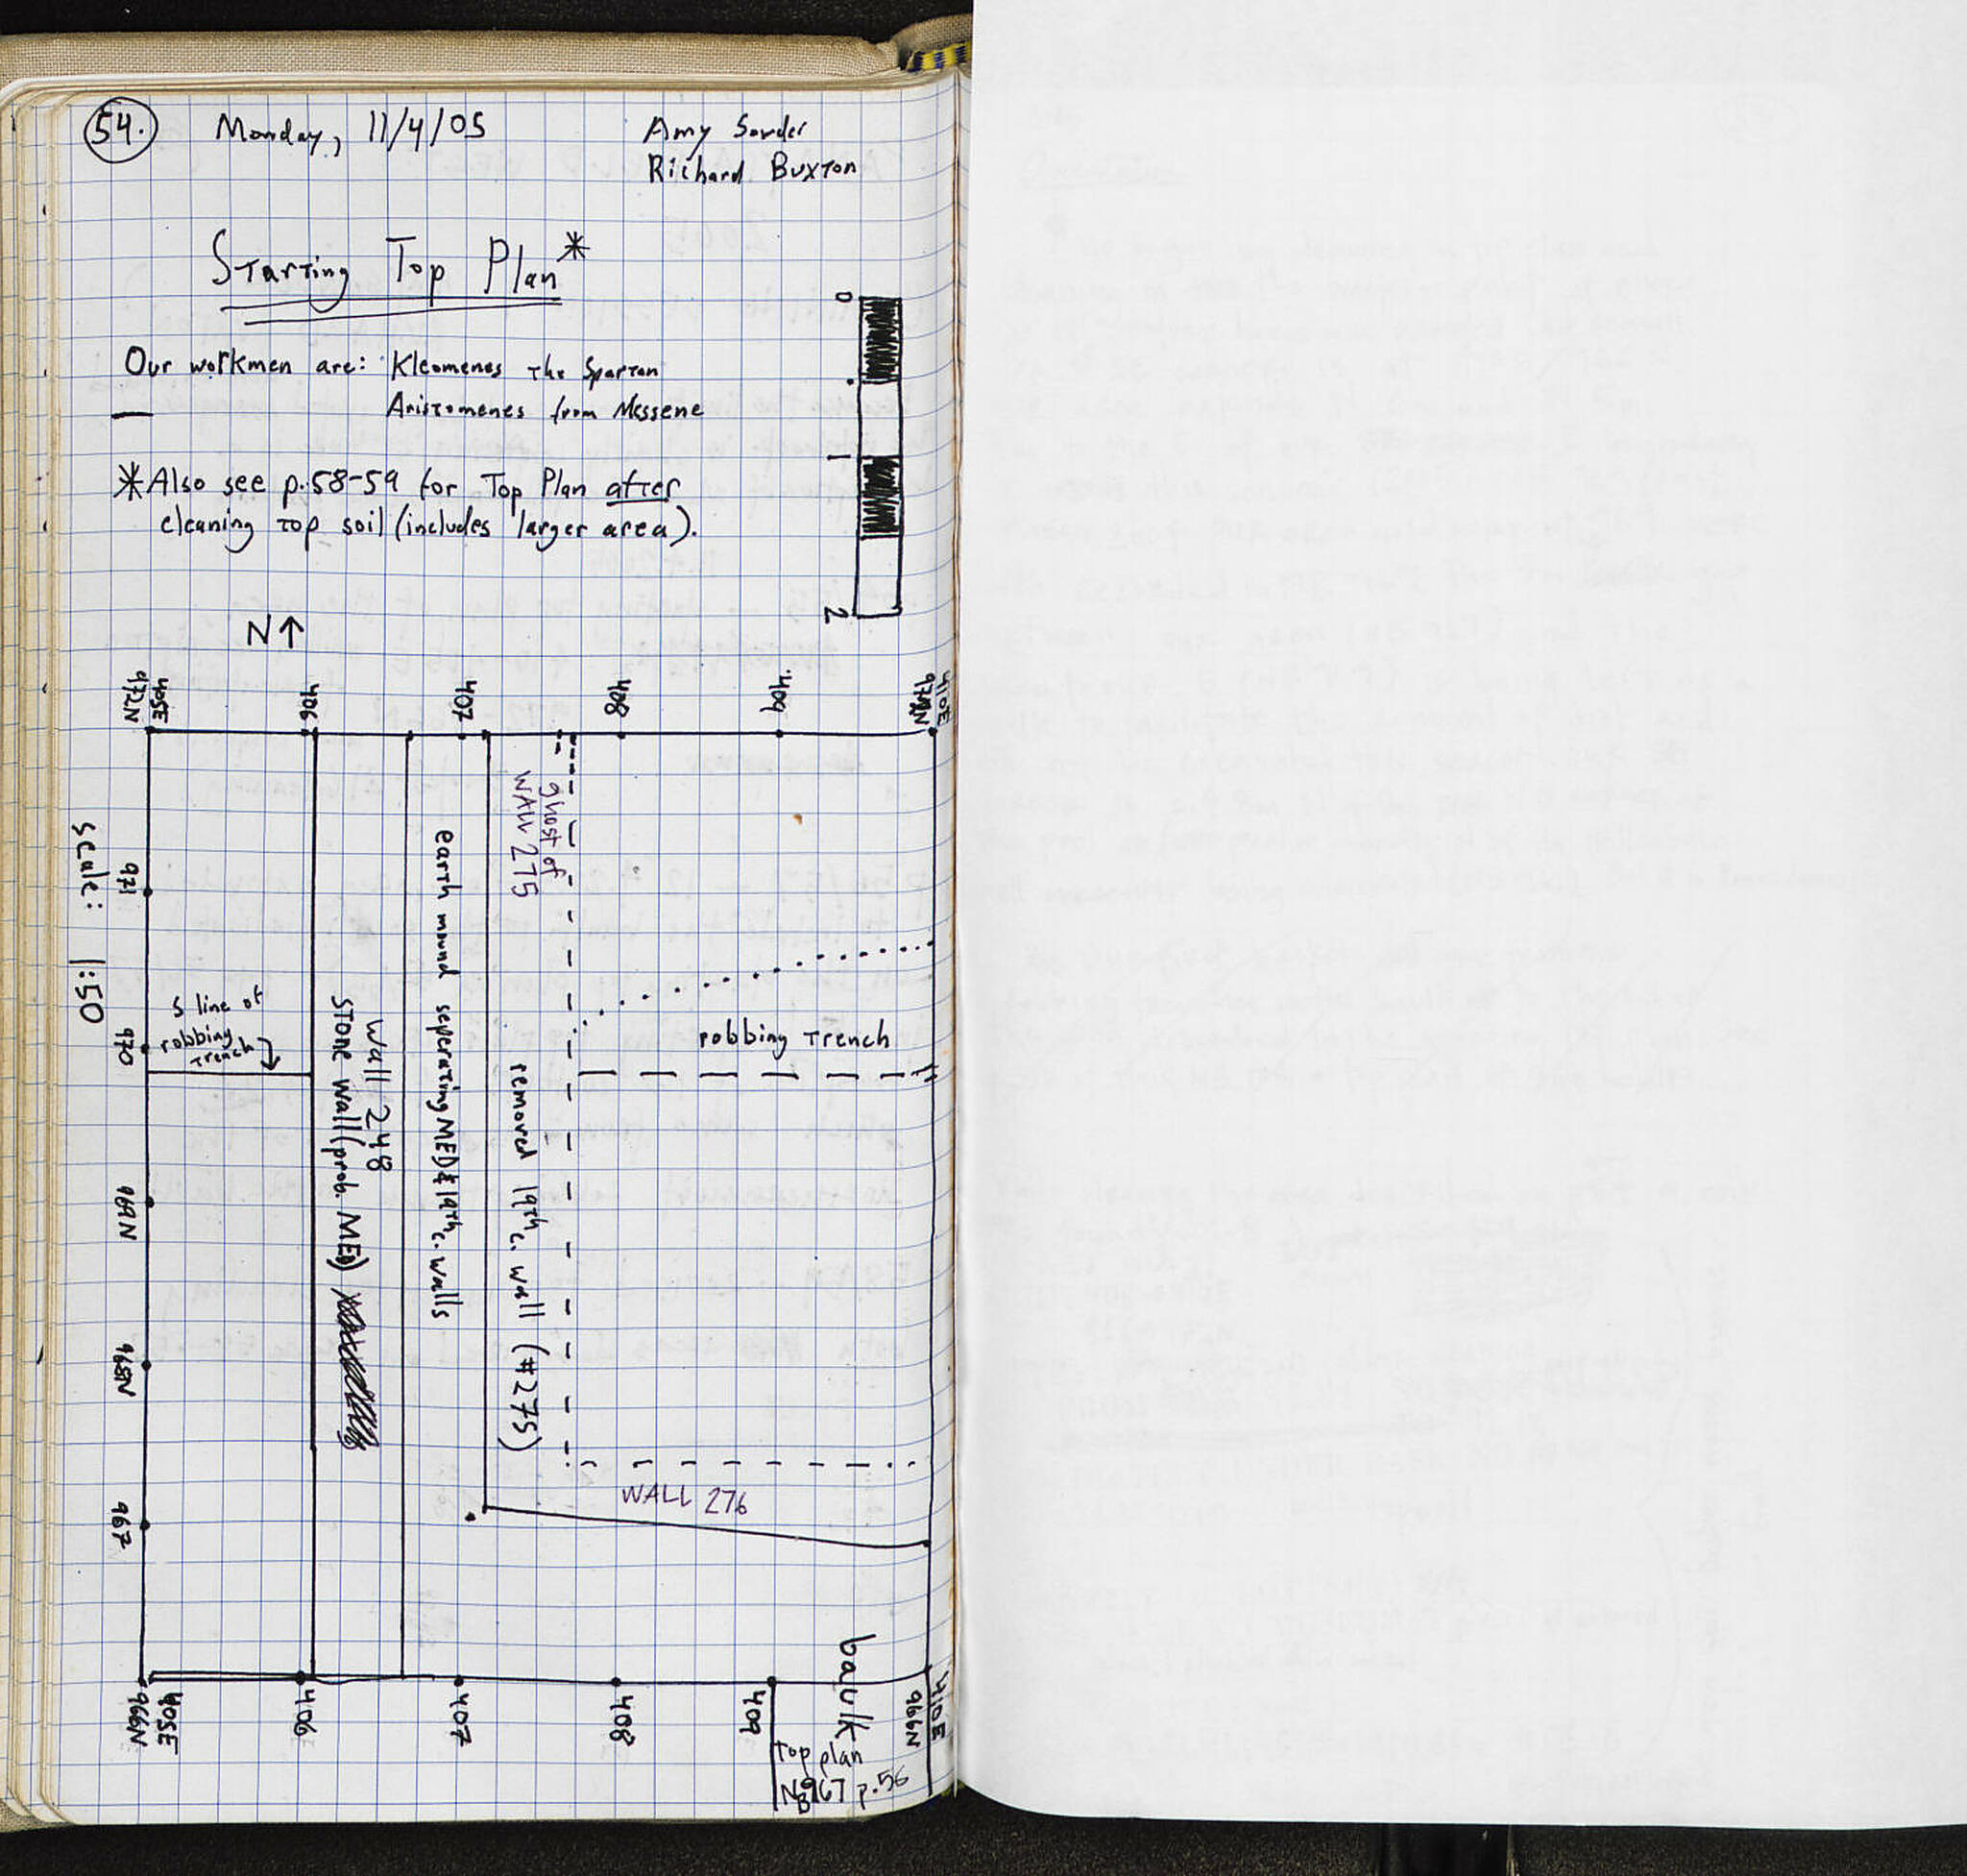 54. Monday, 11/4/05 Amy Sowder
Richard Buxton
Starting Top Plan*
Our workmen are: Kleomenes the Spartan
Aristomenes from Messene
*Also see p.58-59 for Top Plan after
cleaning top soil (includes larger area).
0
1
2
N↑
405E
972N
406
407
408
409
410E
972N
ghost of
WALL 275
971
970
969N
968N
967
scale: 1:50
S line of
robbing
trench
Wall 248
Stone wall (prob. MED)
earth mound seperating MED & 19th c. walls
removed 19th c. wall (#275)
robbing trench
WALL 276
baulk
405E
966N
406
407
408
409
410E
966N
Top plan
NB 967 p.56